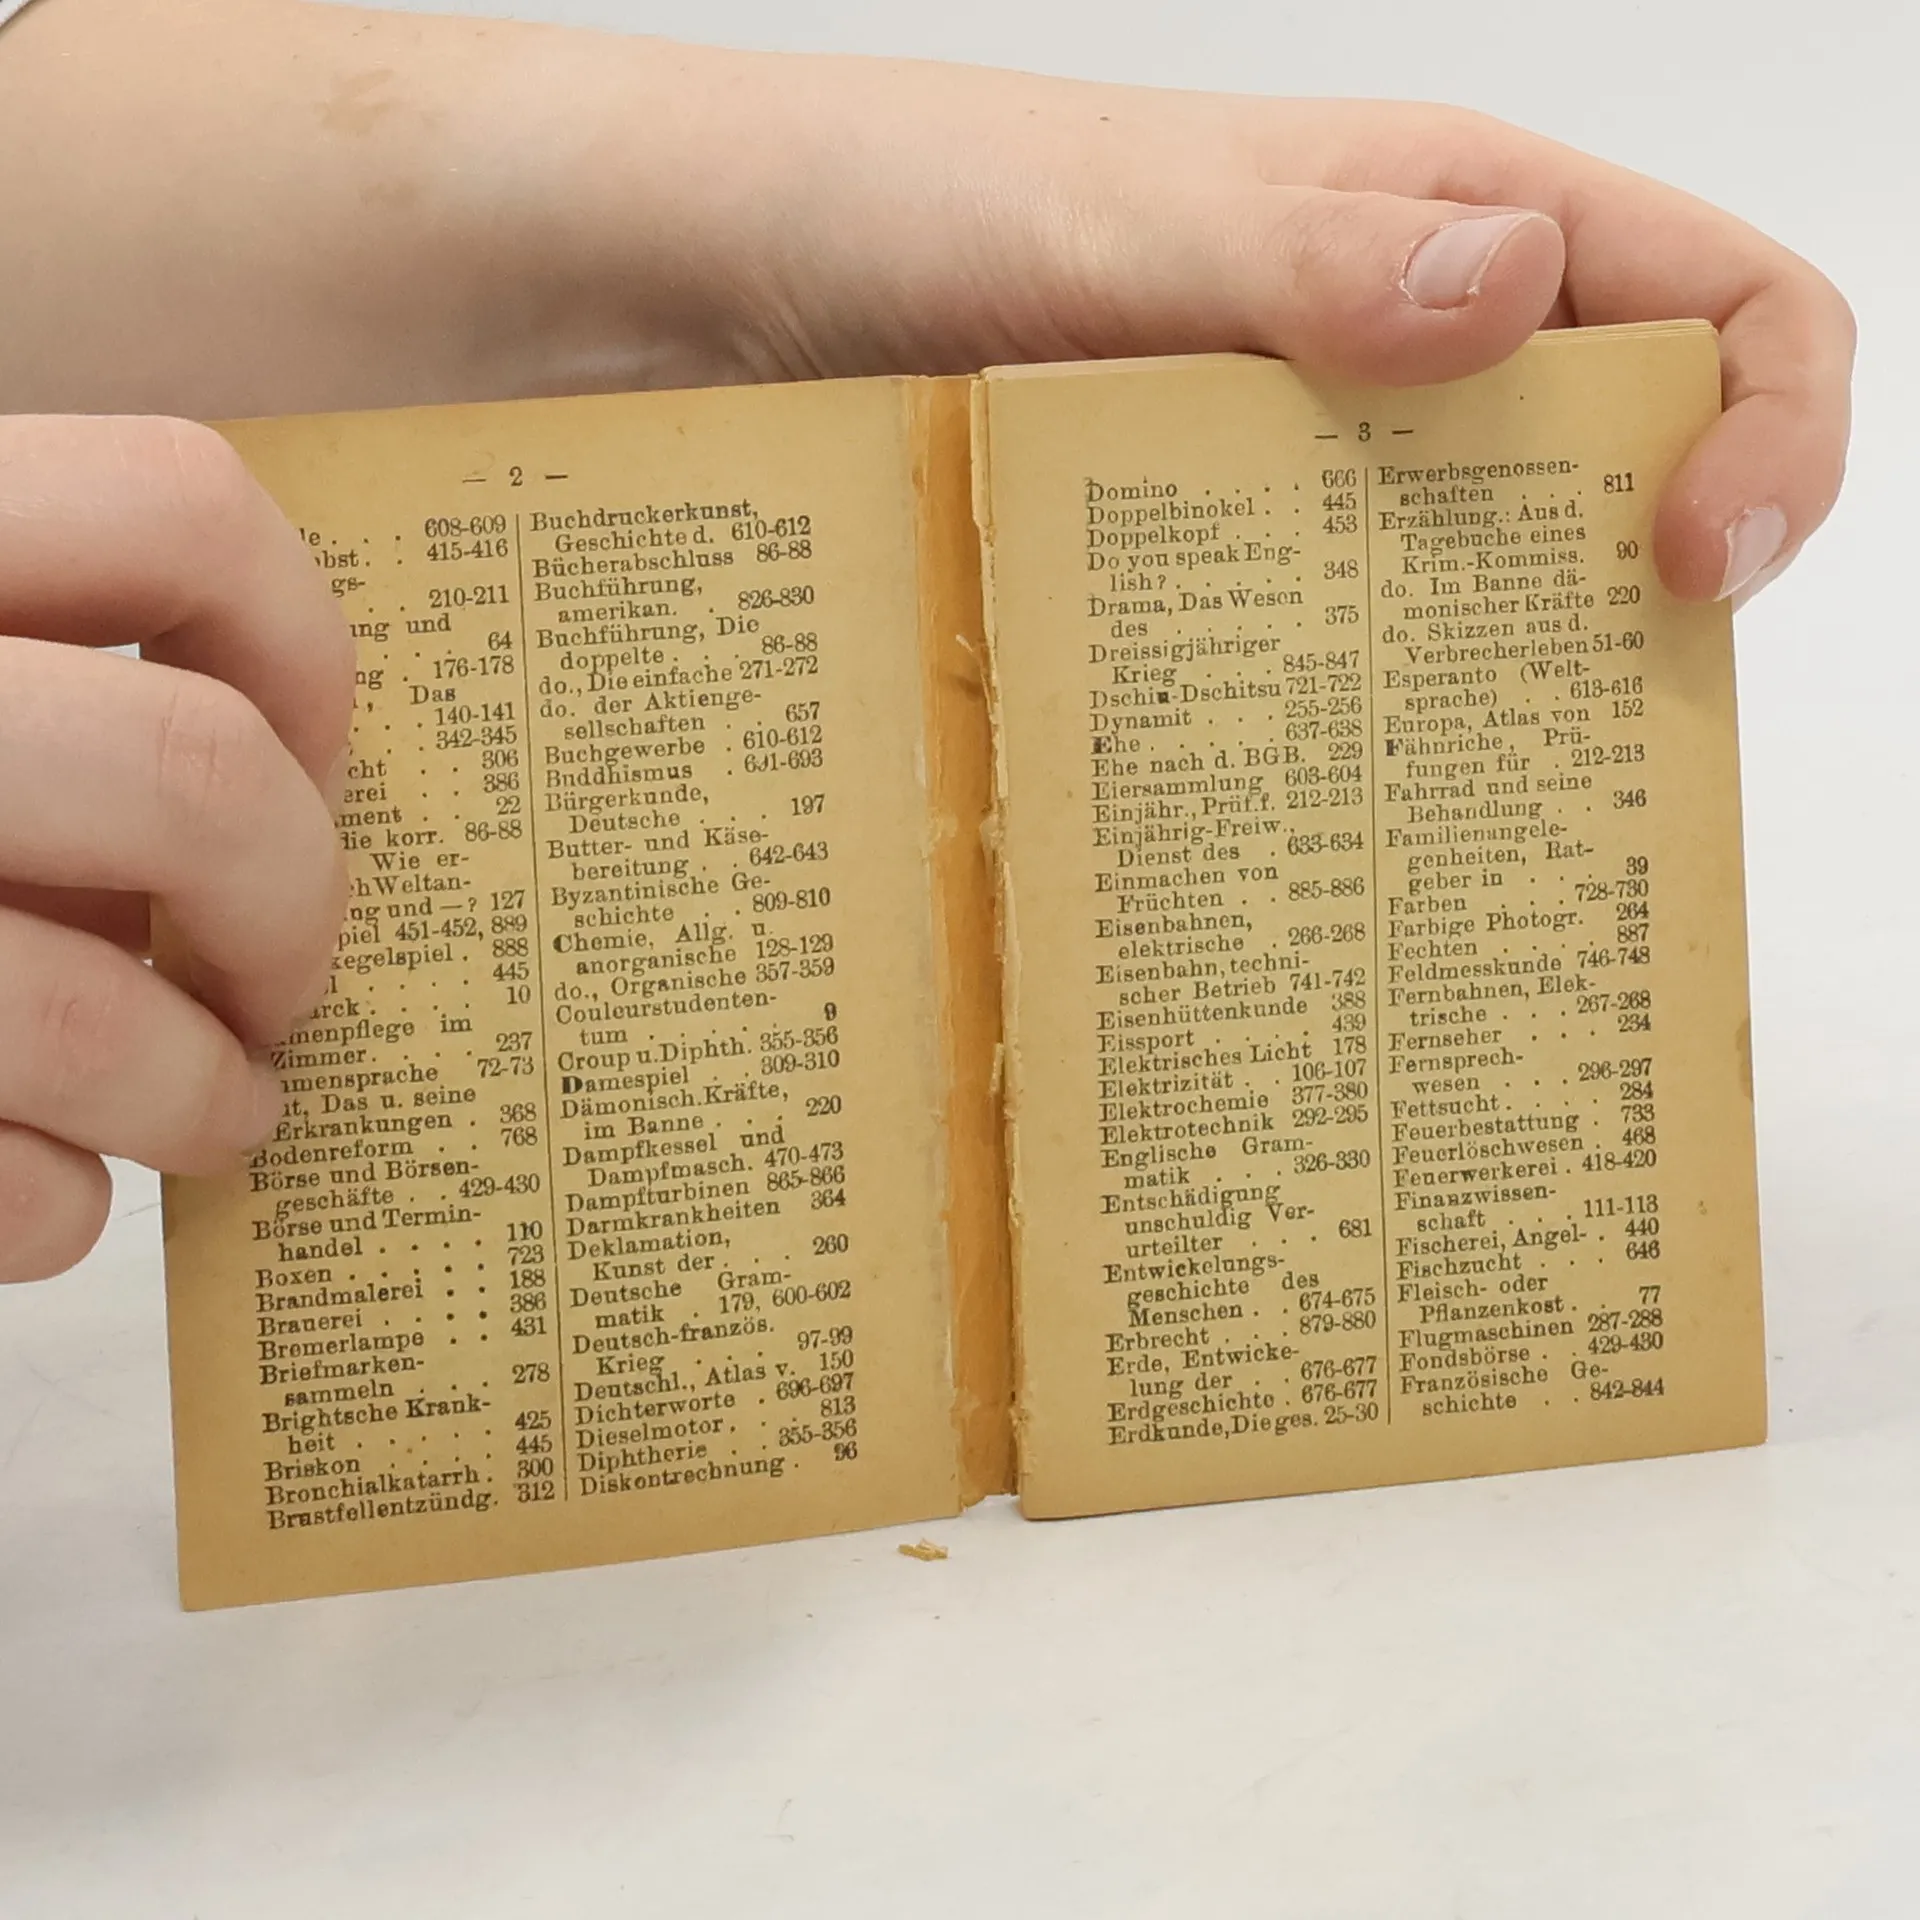 — 2 —
. . . 608-609
. . 415-416
. . 210-211
und
. . . 64
. 176-178
Das
. . . 140-141
. . 342-345
. . 306
. . 386
. . 22
die korr. 86-88
Wie er-
und —? 127
451-452, 889
. 888
. . . . 445
. . . . 10
im
Zimmer. . . . 237
72-73
Das u. seine
Erkrankungen . 368
Bodenreform . . 768
Börse und Börsen-
geschäfte . . 429-430
Börse und Termin-
handel . . . . 110
Boxen . . . . . 723
Brandmalerei . . 188
Brauerei . . . . 386
Bremerlampe . . 431
Briefmarken-
sammeln . . . 278
Brightsche Krank-
heit . . . . . 425
Briskon . . . . 445
Bronchialkatarrh . 300
Brustfellentzündg. 312
Buchdruckerkunst,
Geschichte d. 610-612
Bücherabschluss 86-88
Buchführung,
amerikan. . 826-830
Buchführung, Die
doppelte . . . 86-88
do., Die einfache 271-272
do. der Aktienge-
sellschaften . . 657
Buchgewerbe . 610-612
Buddhismus . 691-693
Bürgerkunde,
Deutsche . . . 197
Butter- und Käse-
bereitung . . 642-643
Byzantinische Ge-
schichte . . 809-810
Chemie, Allg. u.
anorganische 128-129
do., Organische 357-359
Couleurstudenten-
tum . . . . . 9
Croup u. Diphth. 355-356
Damespiel . . 309-310
Dämonisch. Kräfte,
im Banne . . . 220
Dampfkessel und
Dampfmasch. 470-473
Dampfturbinen 865-866
Darmkrankheiten 364
Deklamation,
Kunst der . . . 260
Deutsche Gram-
matik . 179, 600-602
Deutsch-französ.
Krieg . . . 97-99
Deutschl., Atlas v. 150
Dichterworte . 696-697
Dieselmotor . . . 813
Diphtherie . . 355-356
Diskontrechnung . 96
— 3 —
Domino . . . . 666
Doppelbinokel . . 445
Doppelkopf . . . 453
Do you speak Eng-
lish? . . . . . 348
Drama, Das Wesen
des . . . . . 375
Dreissigjähriger
Krieg . . . 845-847
Dschiu-Dschitsu 721-722
Dynamit . . . 255-256
Ehe . . . . . 637-638
Ehe nach d. BGB. 229
Eiersammlung 603-604
Einjähr., Prüf. f. 212-213
Einjährig-Freiw.,
Dienst des . 633-634
Einmachen von
Früchten . . 885-886
Eisenbahnen,
elektrische . 266-268
Eisenbahn, techni-
scher Betrieb 741-742
Eisenhüttenkunde 388
Eissport . . . . 439
Elektrisches Licht 178
Elektrizität . . 106-107
Elektrochemie 377-380
Elektrotechnik 292-295
Englische Gram-
matik . . . 326-330
Entschädigung
unschuldig Ver-
urteilter . . . 681
Entwickelungs-
geschichte des
Menschen . . 674-675
Erbrecht . . . 879-880
Erde, Entwicke-
lung der . . 676-677
Erdgeschichte . 676-677
Erdkunde, Die ges. 25-30
Erwerbsgenossen-
schaften . . . 811
Erzählung.: Aus d.
Tagebuche eines
Krim.-Kommiss. 90
do. Im Banne dä-
monischer Kräfte 220
do. Skizzen aus d.
Verbrecherleben 51-60
Esperanto (Welt-
sprache) . . 613-616
Europa, Atlas von 152
Fähnriche, Prü-
fungen für . 212-213
Fahrrad und seine
Behandlung . . 346
Familienangele-
genheiten, Rat-
geber in . . . 39
Farben . . . 728-730
Farbige Photogr. 264
Fechten . . . . 887
Feldmesskunde 746-748
Fernbahnen, Elek-
trische . . . 267-268
Fernseher . . . 234
Fernsprech-
wesen . . . 296-297
Fettsucht . . . . 284
Feuerbestattung . 733
Feuerlöschwesen . 468
Feuerwerkerei . 418-420
Finanzwissen-
schaft . . . 111-113
Fischerei, Angel- . 440
Fischzucht . . . 646
Fleisch- oder
Pflanzenkost . . 77
Flugmaschinen 287-288
Fondsbörse . . 429-430
Französische Ge-
schichte . . 842-844